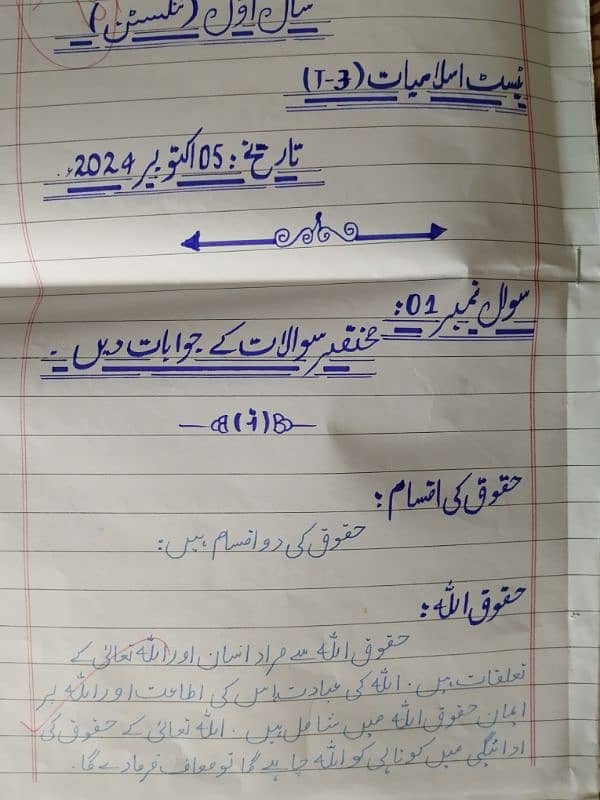 سال اوّل (نکسٹن)
ٹیسٹ اسلامیات (T-3)
تاریخ: 05 اکتوبر 2024ء.
سوال نمبر 01:
مختصر سوالات کے جوابات دیں۔
(i)
حقوق کی اقسام:
حقوق کی دو اقسام ہیں:
حقوق اللہ:
حقوق اللہ سے مراد انسان اور اللہ تعالیٰ کے
تعلقات ہیں۔ اللہ کی عبادت، اس کی اطاعت اور اللہ پر
ایمان حقوق اللہ میں شامل ہیں۔ اللہ تعالیٰ کے حقوق کی
ادائیگی میں کوتاہی کو اللہ چاہے گا تو معاف فرما دے گا۔